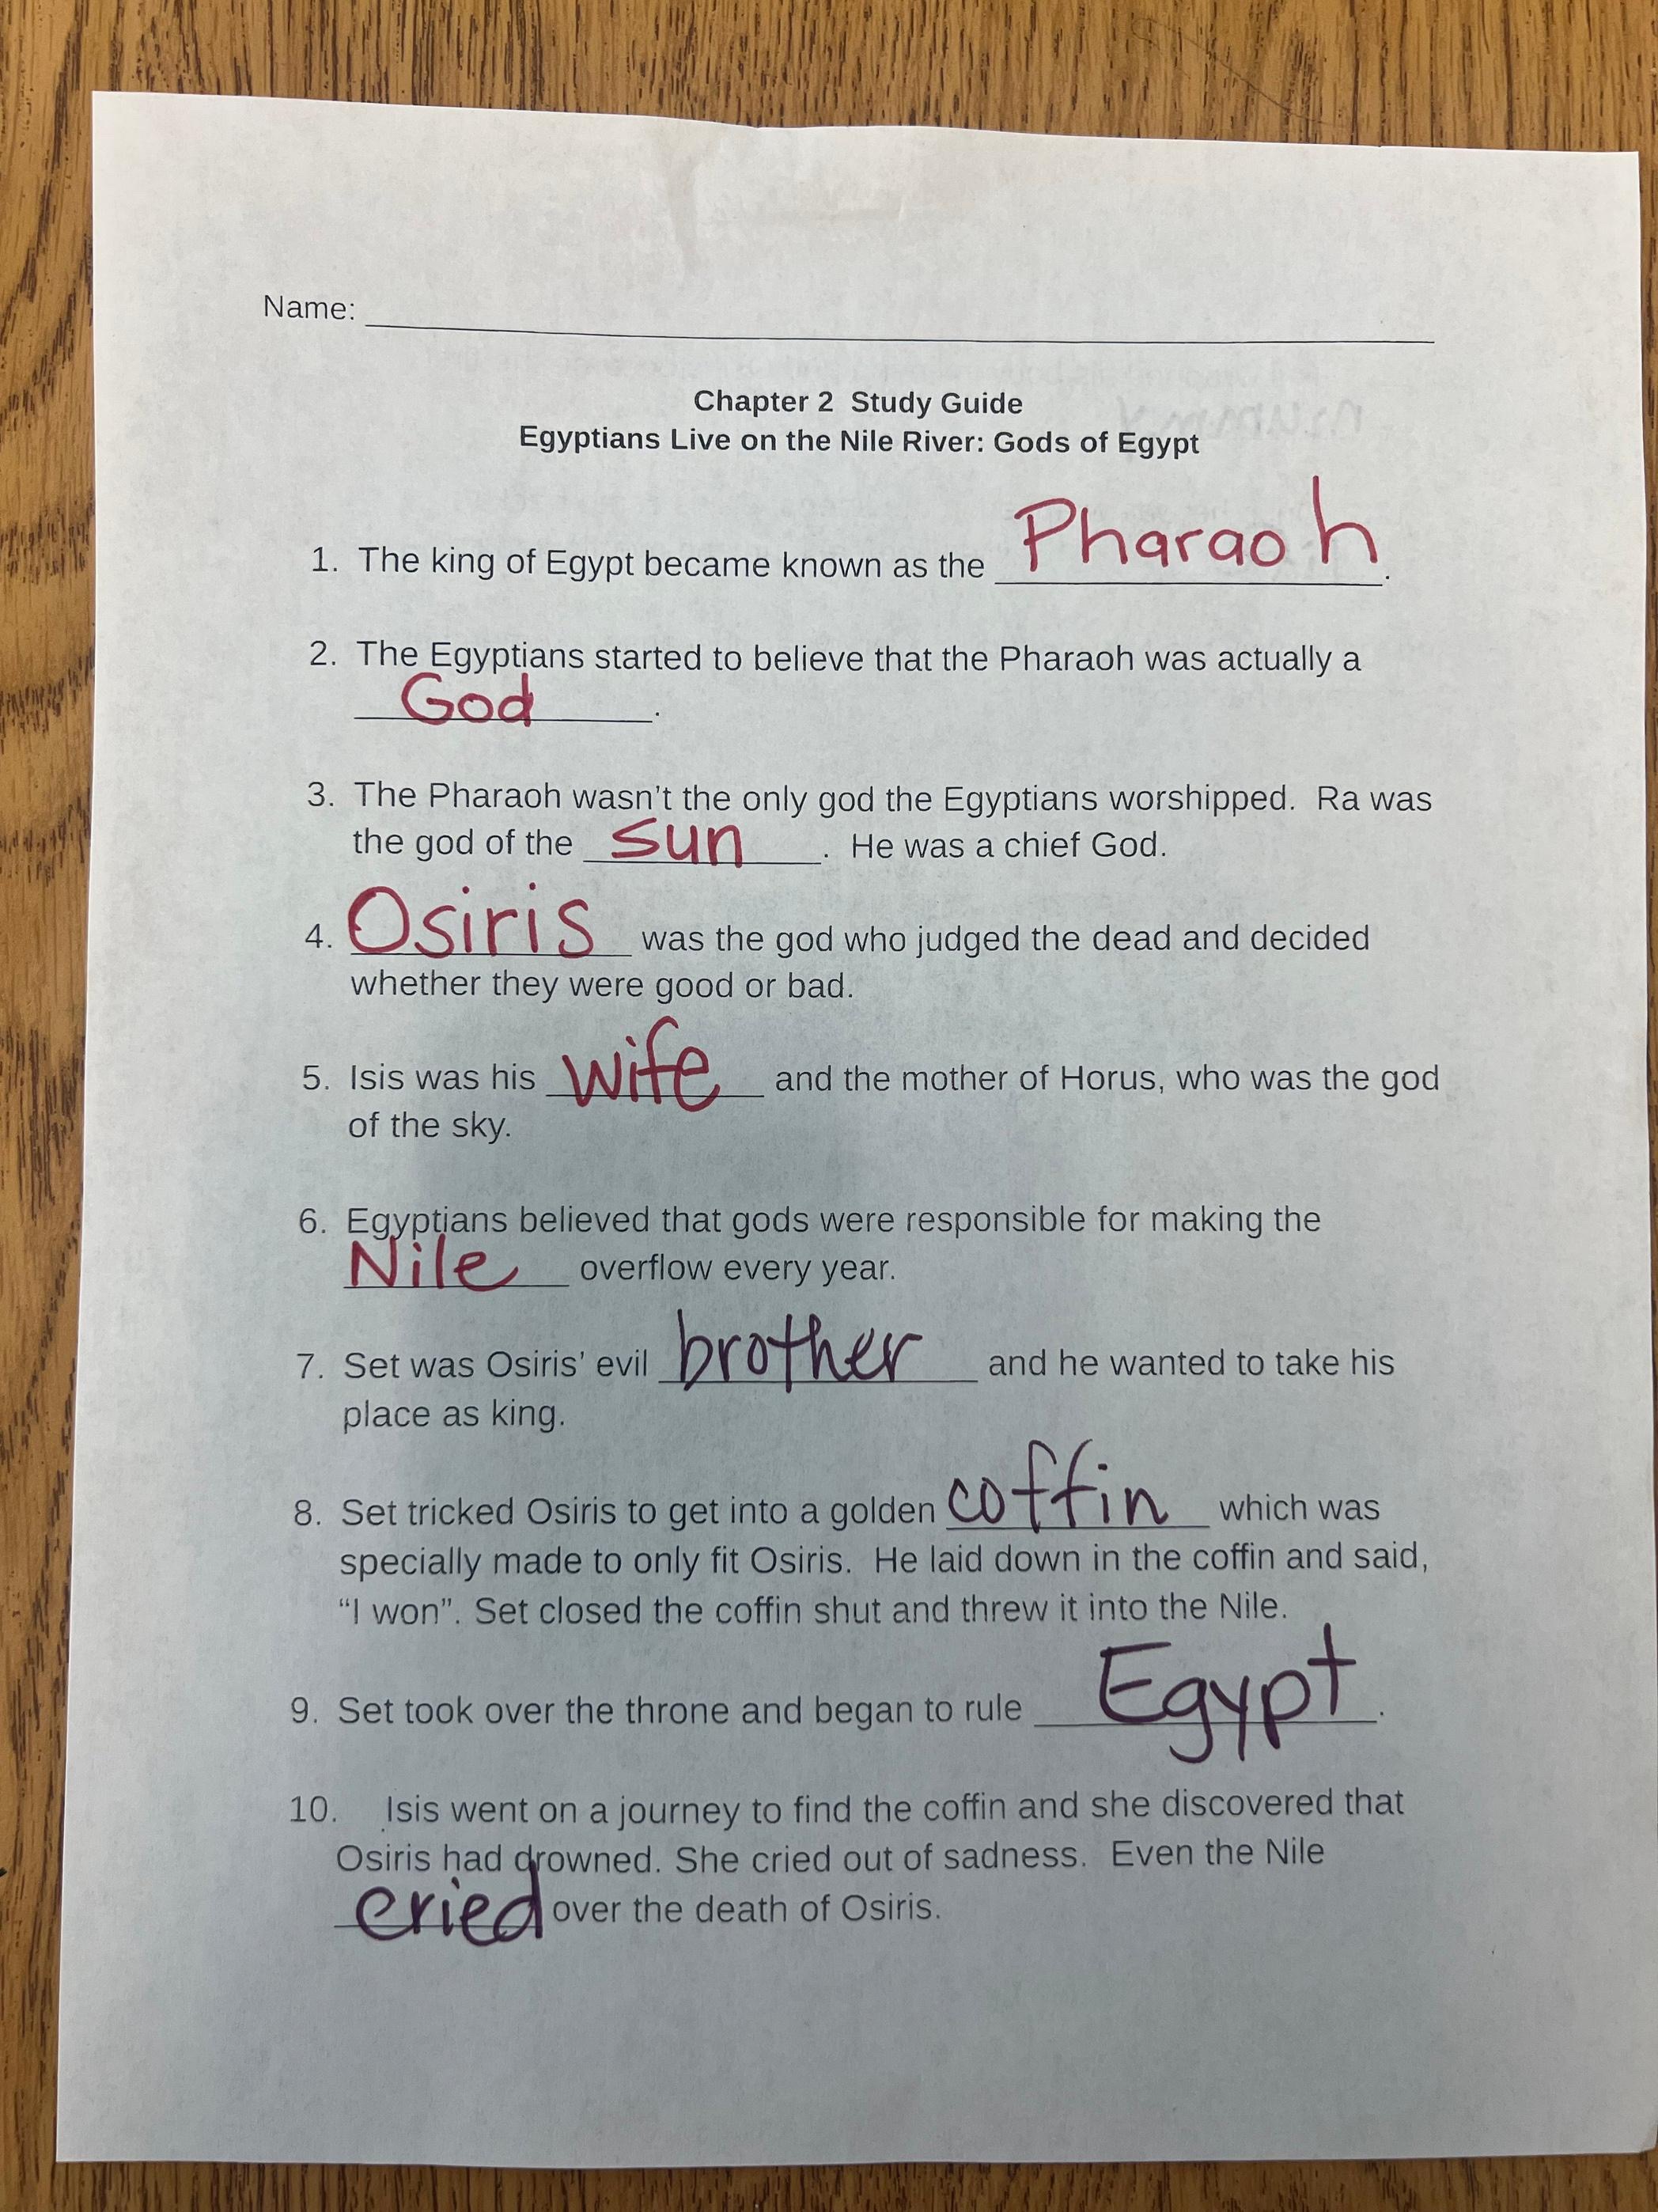 Name:
Chapter 2  Study Guide
Egyptians Live on the Nile River: Gods of Egypt
1. The king of Egypt became known as the Pharaoh.
2. The Egyptians started to believe that the Pharaoh was actually a
God.
3. The Pharaoh wasn't the only god the Egyptians worshipped.  Ra was
the god of the sun.  He was a chief God.
4. Osiris was the god who judged the dead and decided
whether they were good or bad.
5. Isis was his wife and the mother of Horus, who was the god
of the sky.
6. Egyptians believed that gods were responsible for making the
Nile overflow every year.
7. Set was Osiris' evil brother and he wanted to take his
place as king.
8. Set tricked Osiris to get into a golden coffin which was
specially made to only fit Osiris.  He laid down in the coffin and said,
"I won". Set closed the coffin shut and threw it into the Nile.
9. Set took over the throne and began to rule Egypt.
10. Isis went on a journey to find the coffin and she discovered that
Osiris had drowned. She cried out of sadness.  Even the Nile
cried over the death of Osiris.